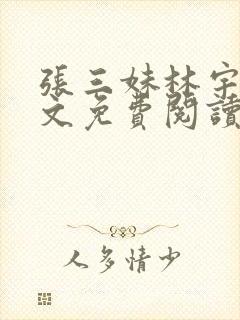 張三妹林宇
文免費閱讀
人多情少